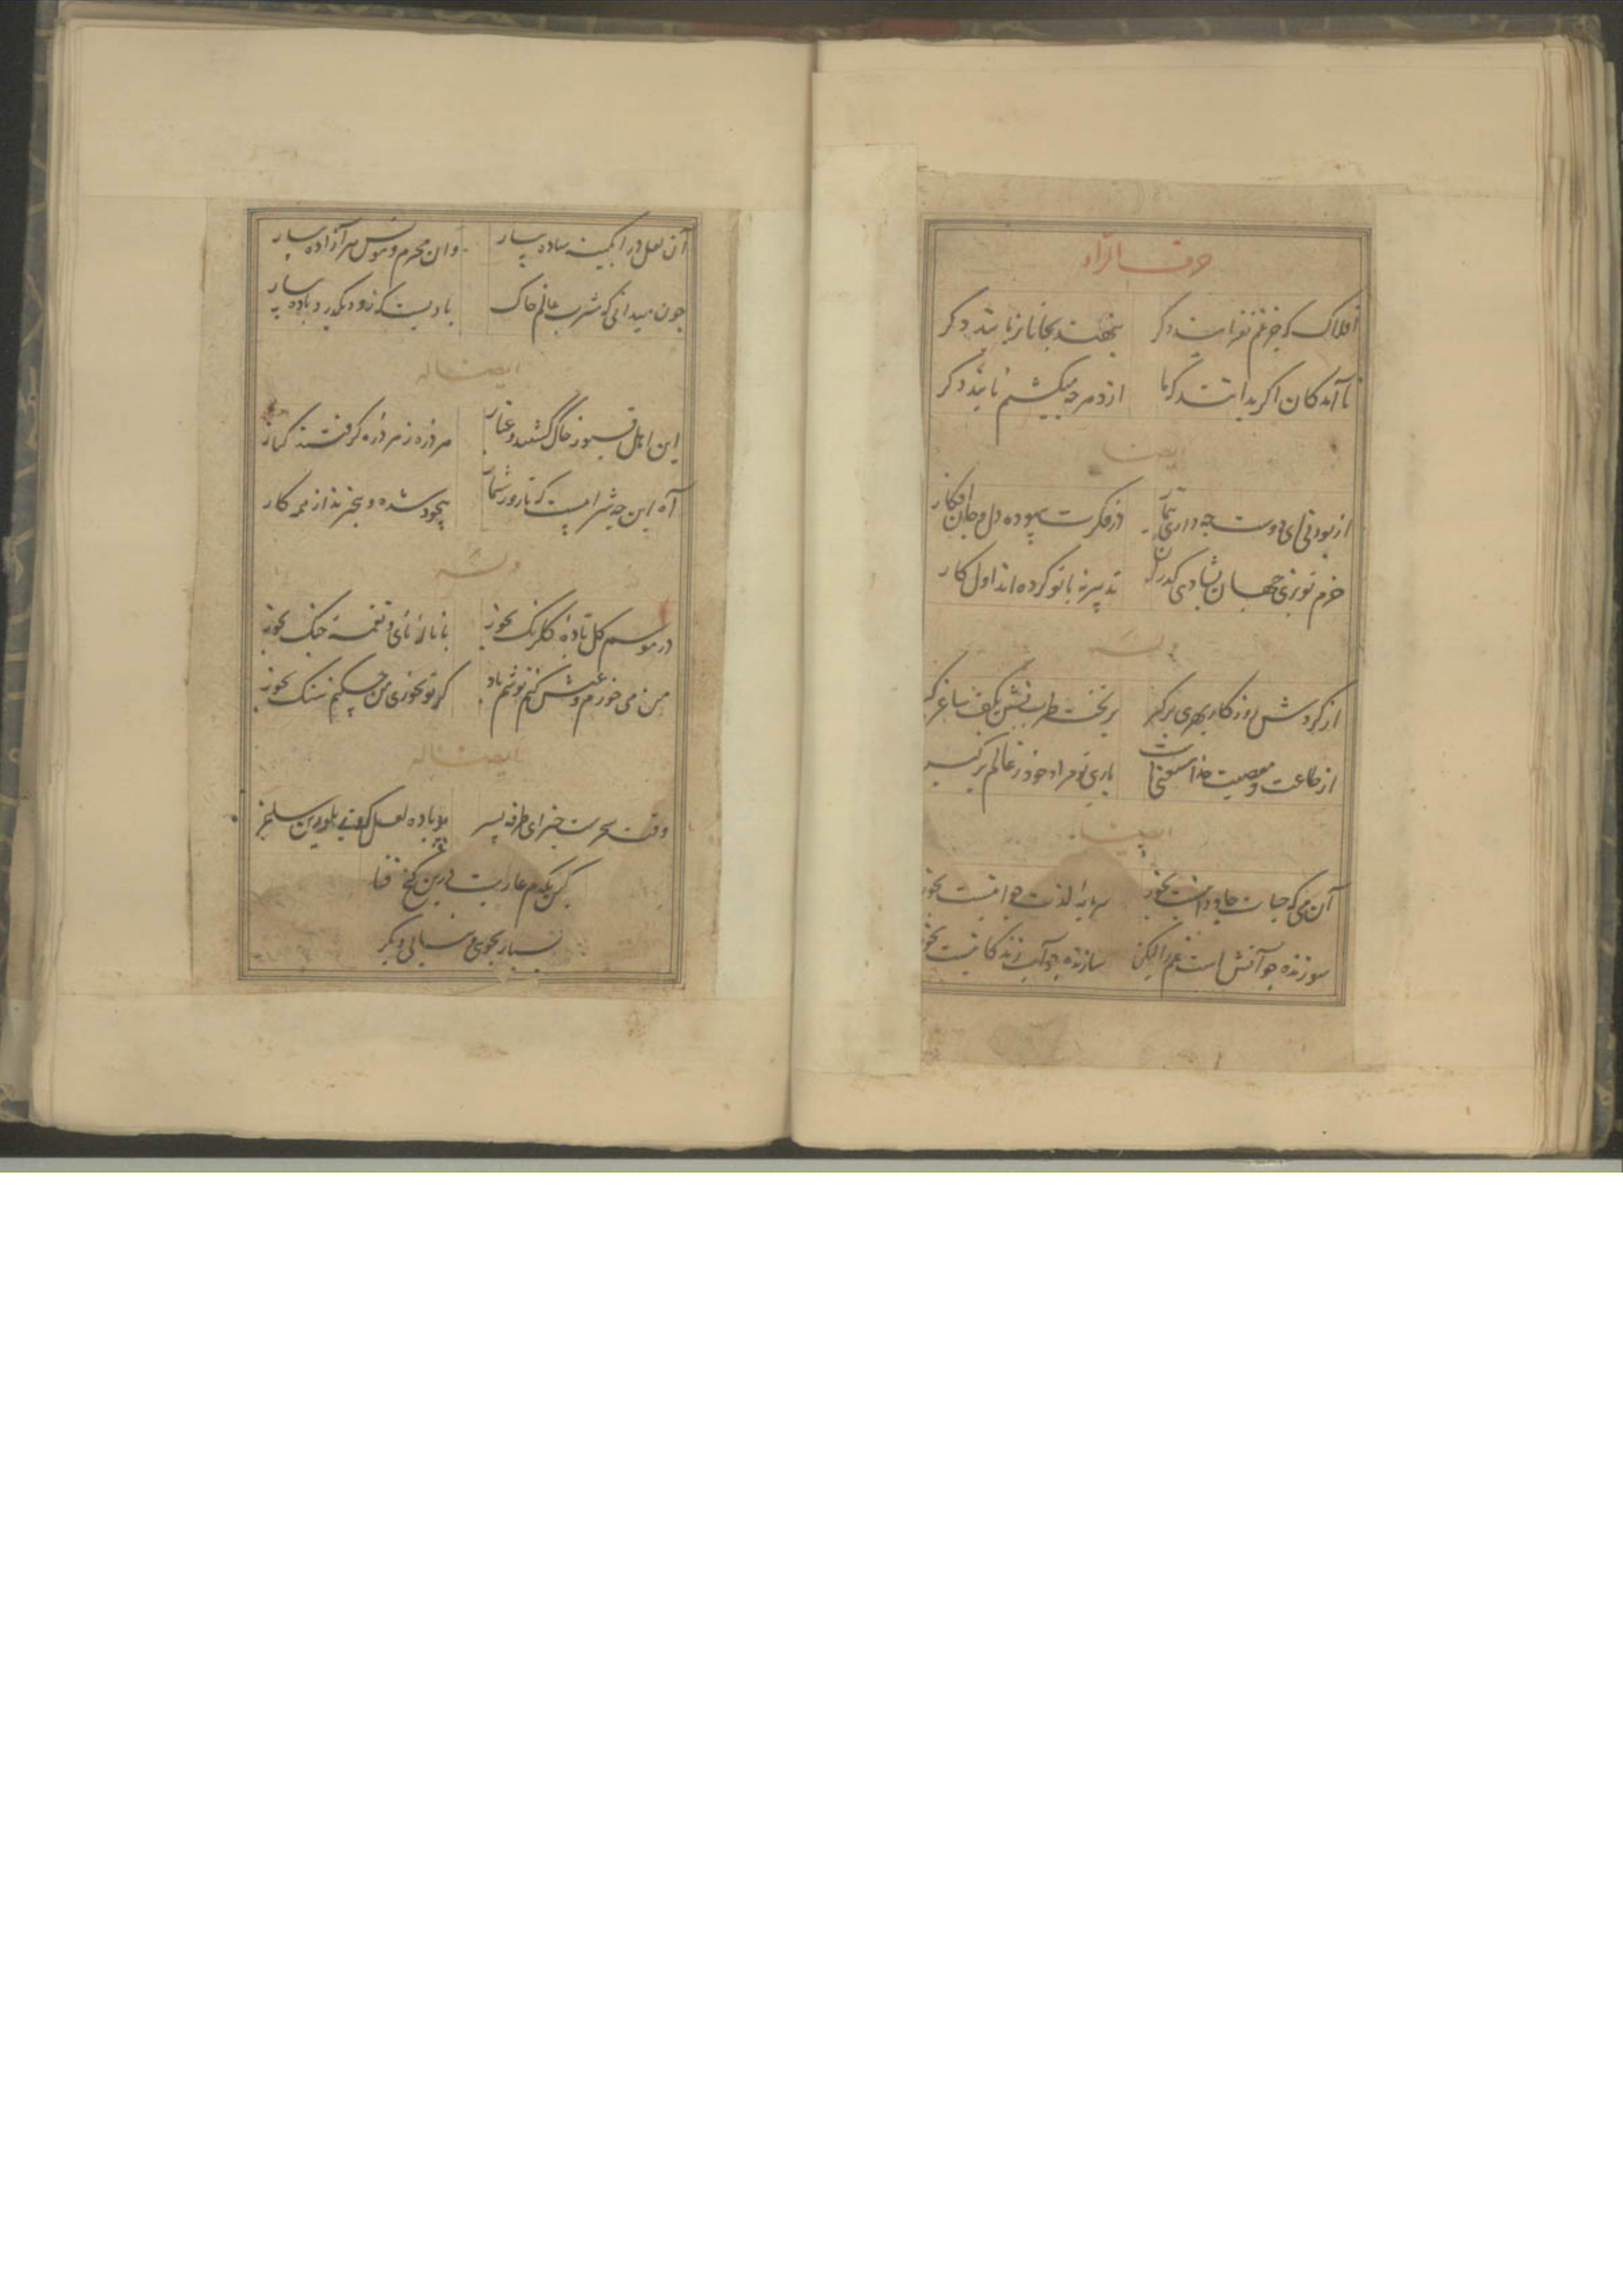 حرف الراء
افلاک که جز غم نفزایند دکر
ننهند بجا تا نربایند دکر
ناآمدکان اکر بدانند که ما
از دهر چه میکشیم نایند دکر
ایضا
از بودنی ای دوست چه داری تیمار
وز فکرت بیهوده دل و جان افکار
خرم تو بزی جهان بشادی کذران
تدبیر نه با تو کرده اند اول کار
وله
از کردش روزکار بهری برکیر
بر تخت طرب نشین بکف ساغر کیر
از طاعت و معصیت خدا مستغنیست
باری تو مراد خود ز عالم برکیر
ایضا
آن می که حیات جاودانیست بخور
سرمایه لذت جوانیست بخور
سوزنده چو آتش است غم را لیکن
سازنده چو آب زندکانیست بخور
آن لعل در آبکینه ساده بیار
وان محرم و مونس هر آزاده بیار
چون میدانی که مدت عالم خاک
بادیست که زود بکذرد باده بیار
ایضا له
این اهل قبور خاک کشتند و غبار
هر ذره ز هر ذره کرفتند کنار
آه این چه شرابیست که تا روز شمار
بیخود شده و بیخبرند از همه کار
وله
در موسم کل باده کلرنک بخور
با ناله نای و نغمه چنک بخور
من می خورم و عیش کنم نوشم باد
کر تو نخوری من چکنم سنک بخور
ایضا له
وقت سحرست خیز ای طرفه پسر
پر باده لعل کن بلورین ساغر
کین یکدم عاریت درین کنج فنا
بسیار بجوی و نیابی دیکر